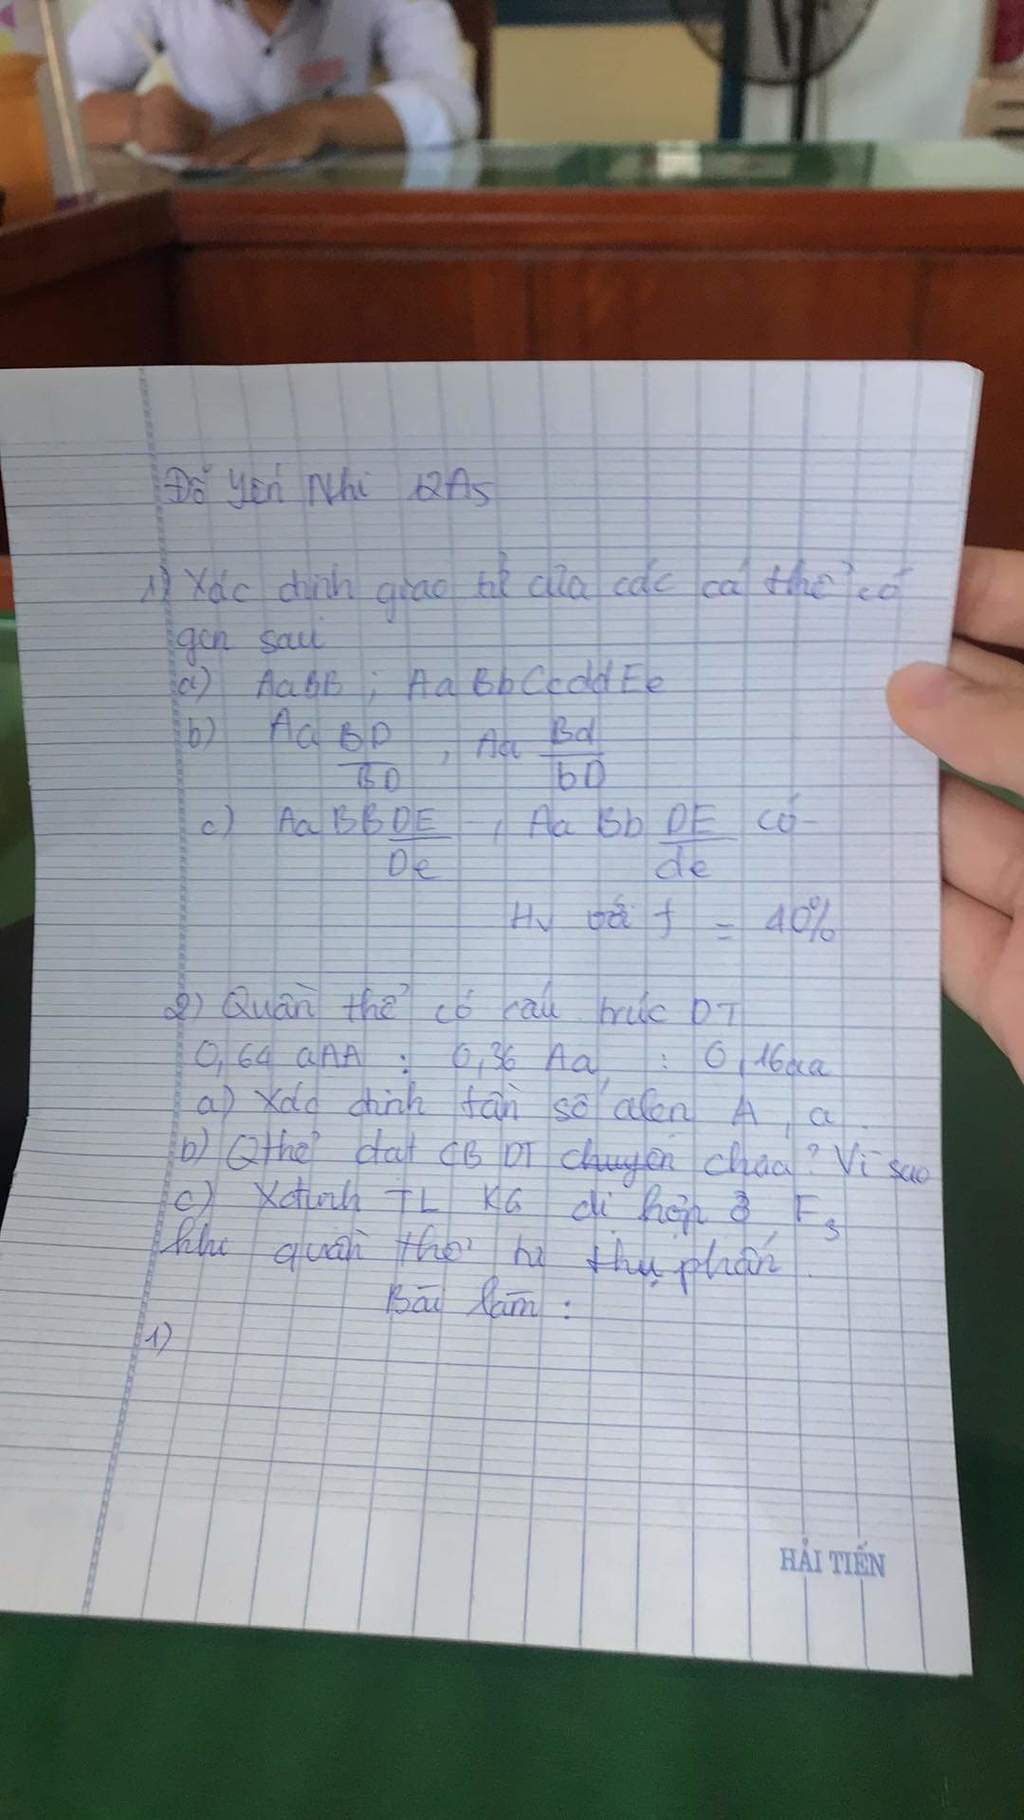 Đỗ Yến Nhi 12A5
1) Xác định giao tử của các cá thể có
gen sau
a) AaBB ; AaBbCcddEe
b) Aa BD/BD , Aa Bd/bD
c) AaBB DE/De , Aa Bb DE/de có
HV với f = 40%
2) Quần thể có cấu trúc DT
0,64 aAA : 0,36 Aa : 0,16aa
a) Xác định tần số alen A, a
b) Qthể đạt CB DT chuyên chưa? Vì sao
c) Xđịnh TL KG dị hợp ở F3
khi quần thể tự thụ phấn.
Bài làm :
1)
HẢI TIẾN